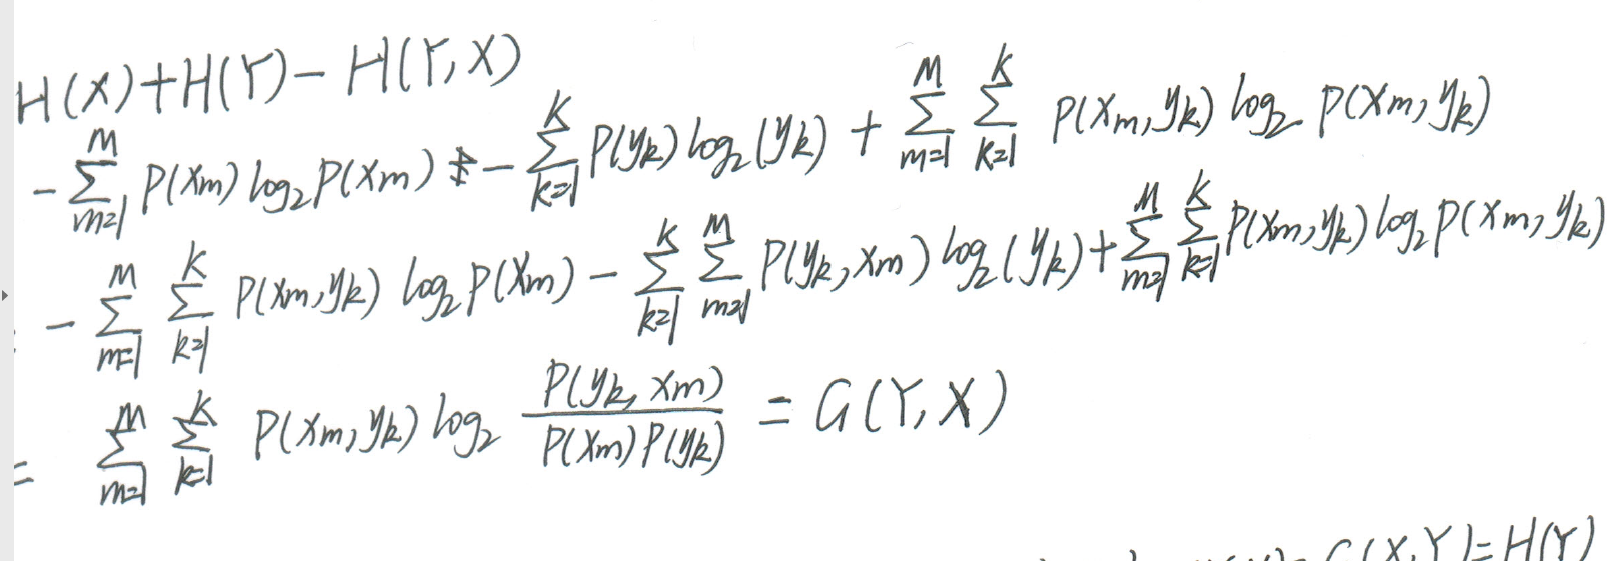 H(X)+H(Y)- H(Y,X)
- \sum_{m=1}^{M} P(x_m) log_2 P(x_m) - \sum_{k=1}^{K} P(y_k) log_2 (y_k) + \sum_{m=1}^{M} \sum_{k=1}^{K} P(x_m, y_k) log_2 P(x_m, y_k)
- \sum_{m=1}^{M} \sum_{k=1}^{K} P(x_m, y_k) log_2 P(x_m) - \sum_{k=1}^{K} \sum_{m=1}^{M} P(y_k, x_m) log_2 (y_k) + \sum_{m=1}^{M} \sum_{k=1}^{K} P(x_m, y_k) log_2 P(x_m, y_k)
= \sum_{m=1}^{M} \sum_{k=1}^{K} P(x_m, y_k) log_2 \frac{P(y_k, x_m)}{P(x_m) P(y_k)} = G(Y,X)
G(X,Y)=H(Y)